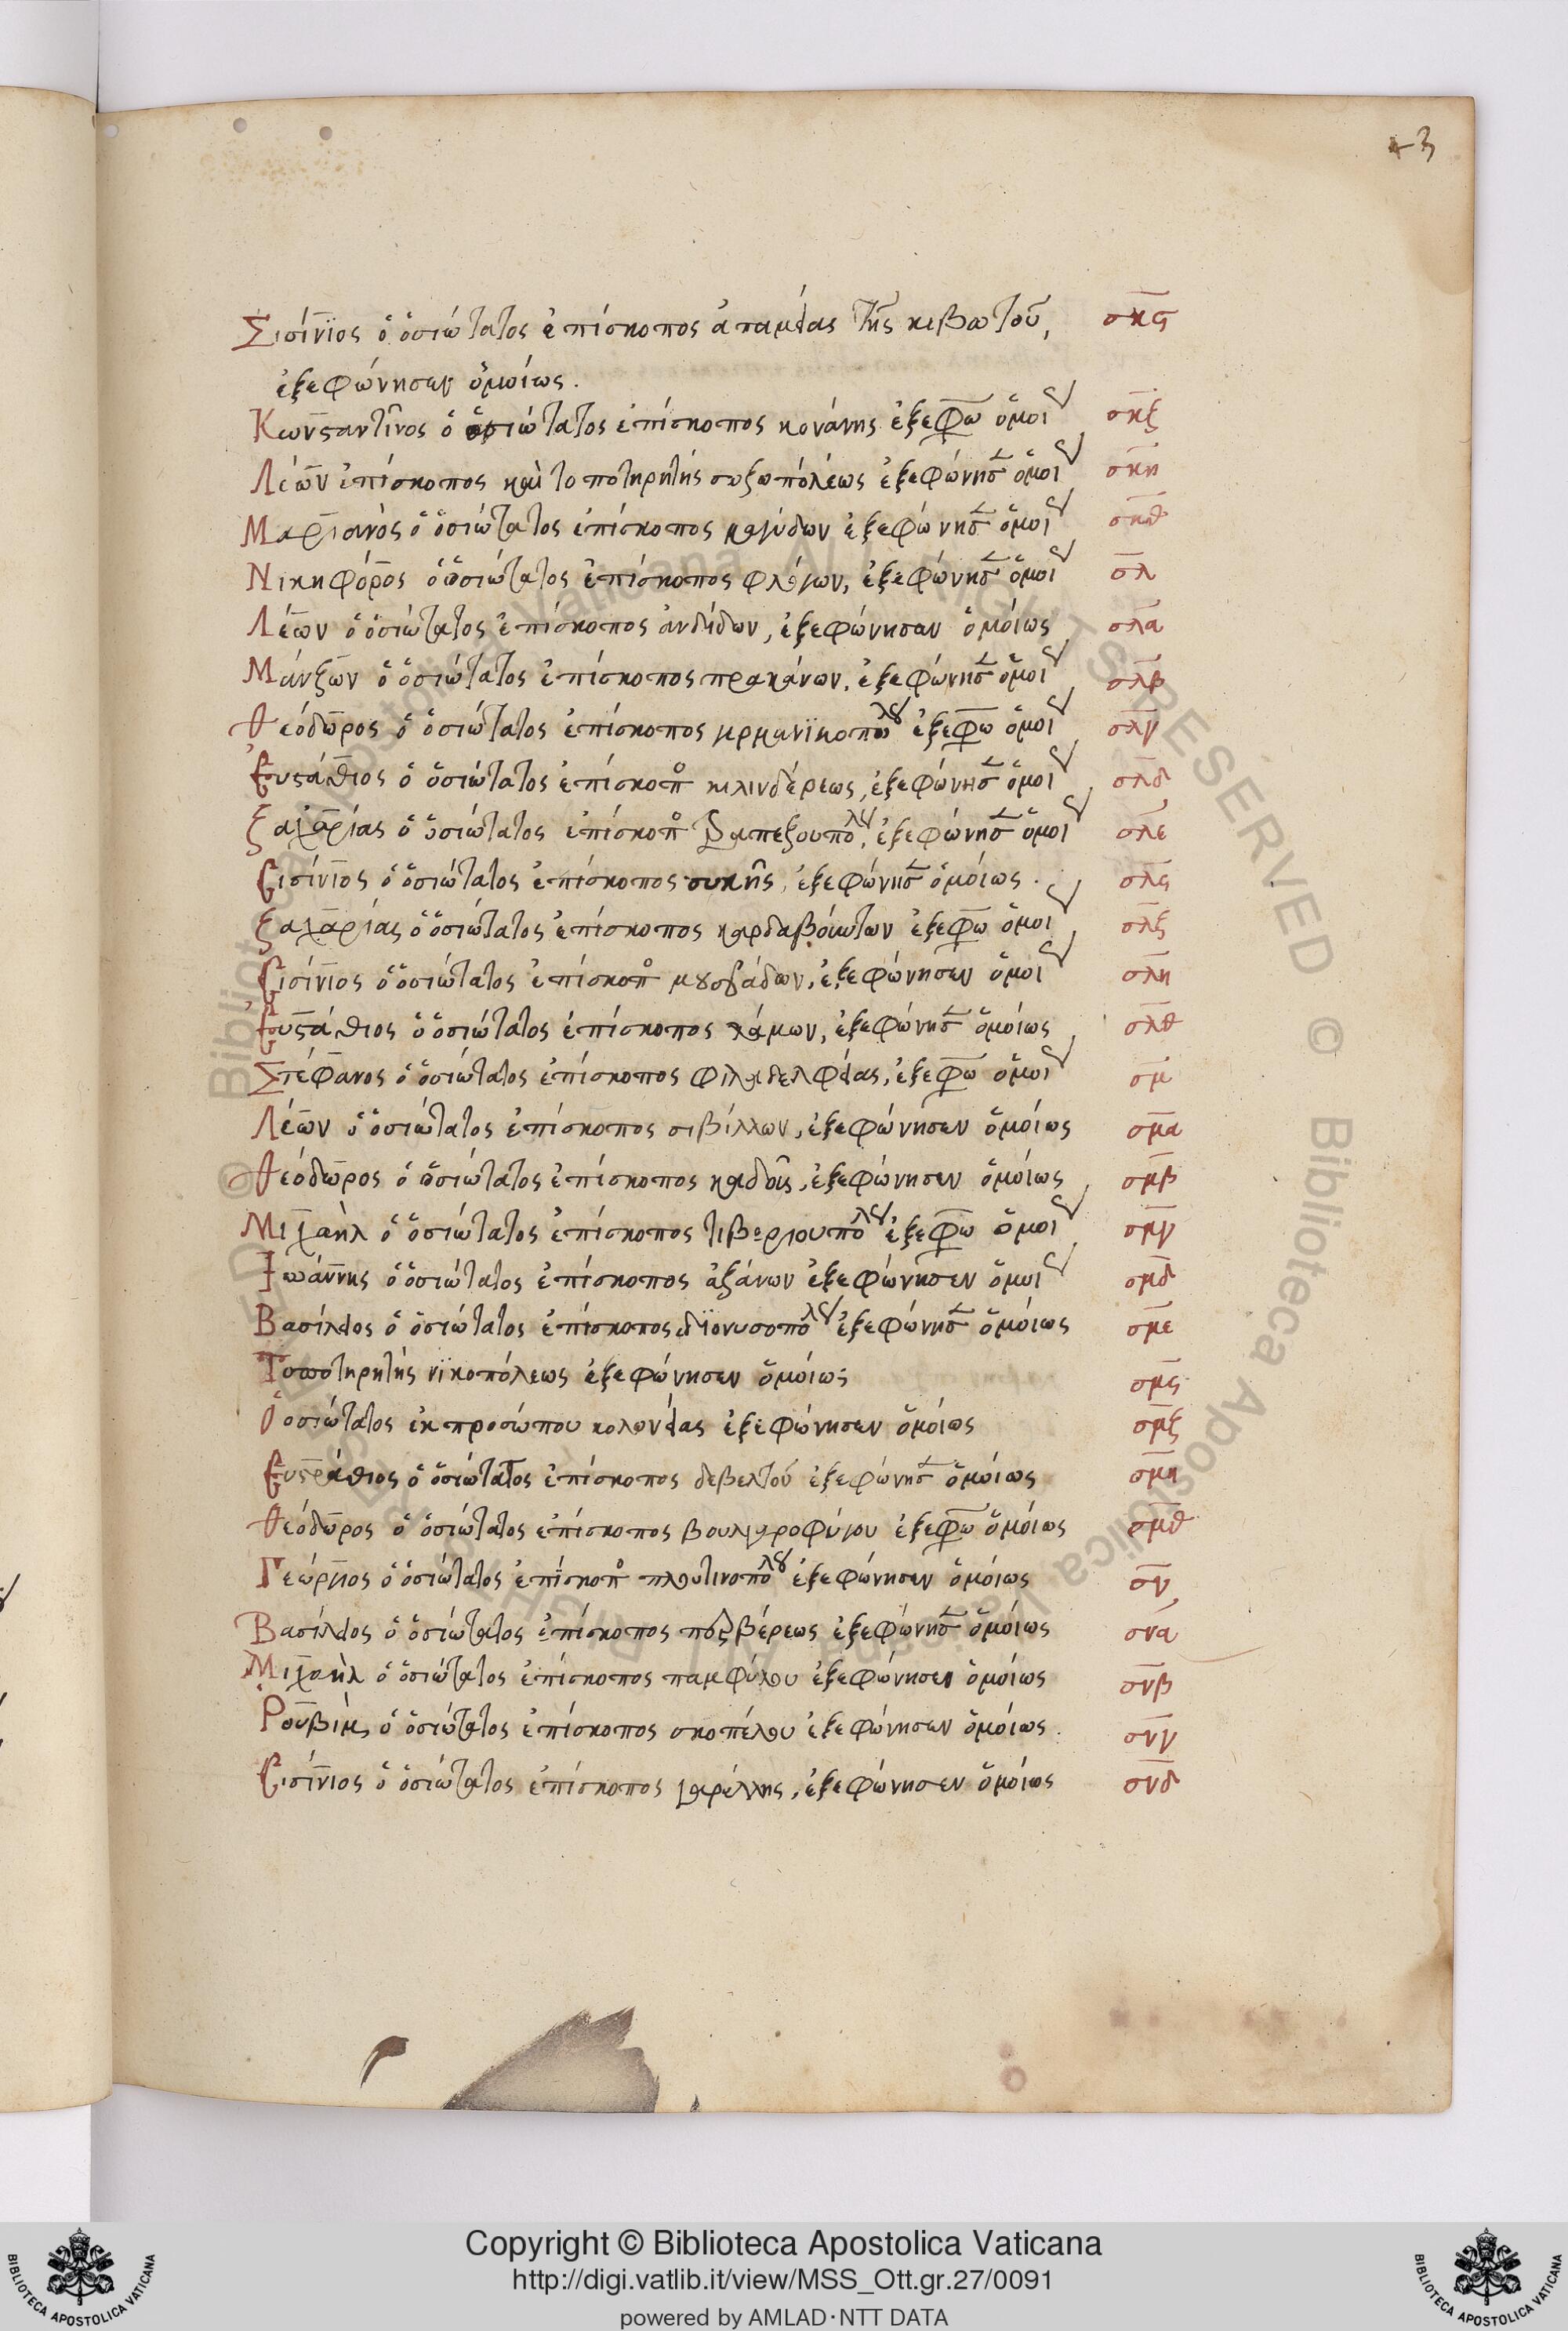 43
Σισίνϊος ὁ ὁσιώτατος ἐπίσκοπος ἀπαμείας τῆς κιβωτοῦ, σκϛ
ἐξεφώνησεν ὁμοίως.
Κωνσταντῖνος ὁ ὁσιώτατος ἐπίσκοπος κονάνης ἐξεφω ὁμοι σκζ
Λέων ἐπίσκοπος καὶ τοποτηρητὴς σωζοπόλεως ἐξεφώνησ ὁμοι σκη
Μαρϊανὸς ὁ ὁσιώτατος ἐπίσκοπος καγύδων ἐξεφώνησ ὁμοι σκθ
Νικηφόρος ὁ ὁσιώτατος ἐπίσκοπος φλόγων, ἐξεφώνησ ὁμοι σλ
Λέων ὁ ὁσιώτατος ἐπίσκοπος ἀνδίδων, ἐξεφώνησαν ὁμοίως σλα
Μάνζων ὁ ὁσιώτατος ἐπίσκοπος πρακάνων, ἐξεφώνησ ὁμοι σλβ
Θεόδωρος ὁ ὁσιώτατος ἐπίσκοπος γερμανϊκοπολ ἐξεφω ὁμοι σλγ
Εὐστάθιος ὁ ὁσιώτατος ἐπίσκοπ κιλινδέρεως, ἐξεφώνησ ὁμοι σλδ
Ζαχαρίας ὁ ὁσιώτατος ἐπίσκοπ τραπεζουπολ, ἐξεφώνησ ὁμοι σλε
Σισίνιος ὁ ὁσιώτατος ἐπίσκοπος συκῆς, ἐξεφώνησ ὁμοίως. σλϛ
Ζαχαρίας ὁ ὁσιώτατος ἐπίσκοπος καρδαβούντων ἐξεφω ὁμοι σλζ
Σισίνιος ὁ ὁσιώτατος ἐπίσκοπ μουσβάδων, ἐξεφώνησεν ὁμοι σλη
Εὐστάθιος ὁ ὁσιώτατος ἐπίσκοπος λάμων, ἐξεφώνησ ὁμοίως σλθ
Στέφανος ὁ ὁσιώτατος ἐπίσκοπος φιλαδελφείας, ἐξεφω ὁμοι σμ
Λέων ὁ ὁσιώτατος ἐπίσκοπος σιβίλλων, ἐξεφώνησεν ὁμοίως σμα
Θεόδωρος ὁ ὁσιώτατος ἐπίσκοπος καδοῖς, ἐξεφώνησεν ὁμοίως σμβ
Μιχαὴλ ὁ ὁσιώτατος ἐπίσκοπος τιβεριουπολ ἐξεφω ὁμοι σμγ
Ιωάννης ὁ ὁσιώτατος ἐπίσκοπος ἀζάνων ἐξεφώνησεν ὁμοι σμδ
Βασίλειος ὁ ὁσιώτατος ἐπίσκοπος διονυσοπολ ἐξεφώνησ ὁμοίως σμε
Τοποτηρητὴς νϊκοπόλεως ἐξεφώνησεν ὁμοίως σμϛ
Ὁσιώτατος ἐκ προσώπου κολωνείας ἐξεφώνησεν ὁμοίως σμζ
Εὐστράθιος ὁ ὁσιώτατος ἐπίσκοπος δεβελτοῦ ἐξεφώνησ ὁμοίως σμη
Θεόδωρος ὁ ὁσιώτατος ἐπίσκοπος βουλγαροφύγου ἐξεφω ὁμοίως σμθ
Γεώργιος ὁ ὁσιώτατος ἐπίσκοπ πλουτινοπολ ἐξεφώνησεν ὁμοίως σν
Βασίλειος ὁ ὁσιώτατος ἐπίσκοπος περβέρεως ἐξεφώνησ ὁμοίως σνα
Μιχαὴλ ὁ ὁσιώτατος ἐπίσκοπος παμφύλου ἐξεφώνησεν ὁμοίως σνβ
Ρουβὶμ ὁ ὁσιώτατος ἐπίσκοπος σκοπέλου ἐξεφώνησεν ὁμοίως. σνγ
Σισίνιος ὁ ὁσιώτατος ἐπίσκοπος γαρέλλης, ἐξεφώνησεν ὁμοίως σνδ
Copyright © Biblioteca Apostolica Vaticana
http://digi.vatlib.it/view/MSS_Ott.gr.27/0091
powered by AMLAD·NTT DATA
BIBLIOTECA APOSTOLICA VATICANA
BIBLIOTECA APOSTOLICA VATICANA